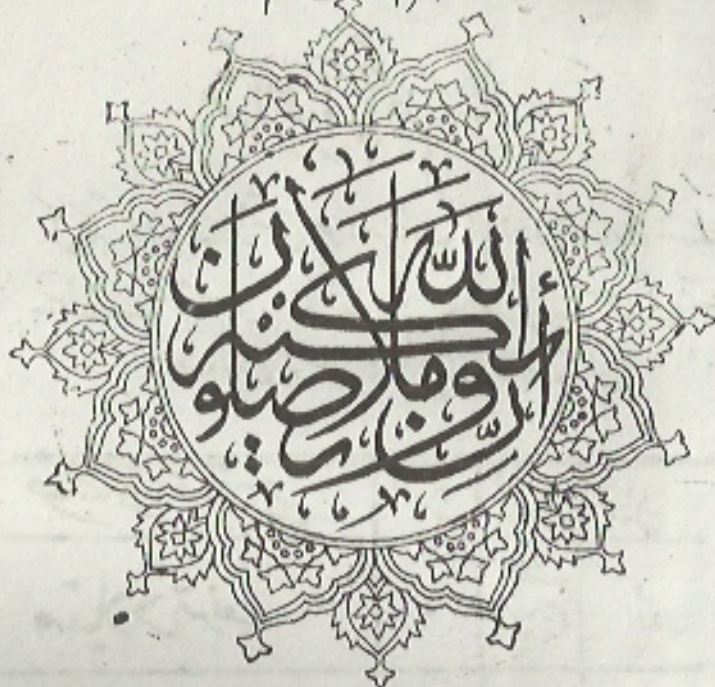 إنّ الله وملائكته يصلون